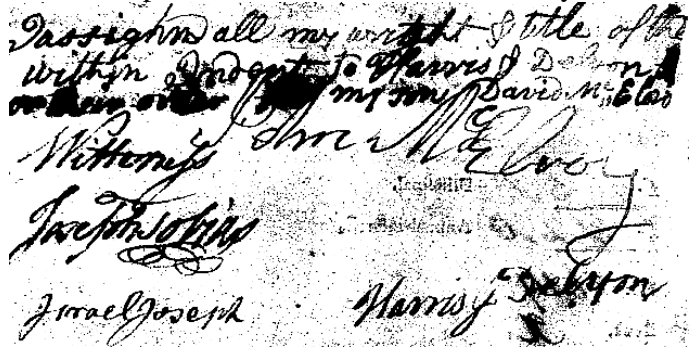 I assighn all my wright & title of the
within Indent to Harris & Debyon
or thear order my son David McElvo
John McElvoy
Wittneness
Joseph Tobias
Israel Joseph
Harris & Debyon